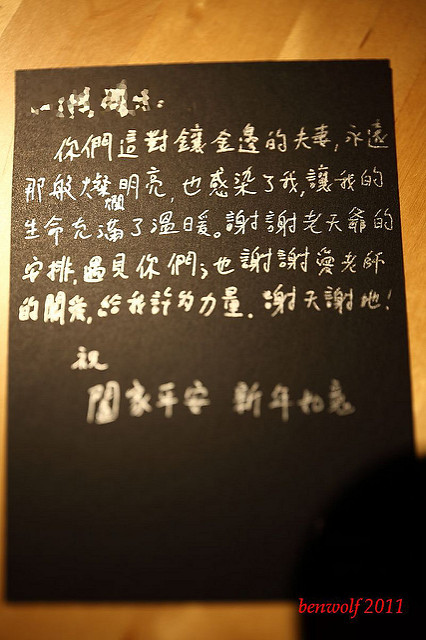 你們這對鑲金邊的夫妻,永遠
那般燦爛明亮,也感染了我,讓我的
生命充滿了溫暖。謝謝老天爺的
安排,遇見你們;也謝謝愛老師
的,給我許多力量.謝天謝地!
祝
闔家平安 新年如意
benwolf 2011